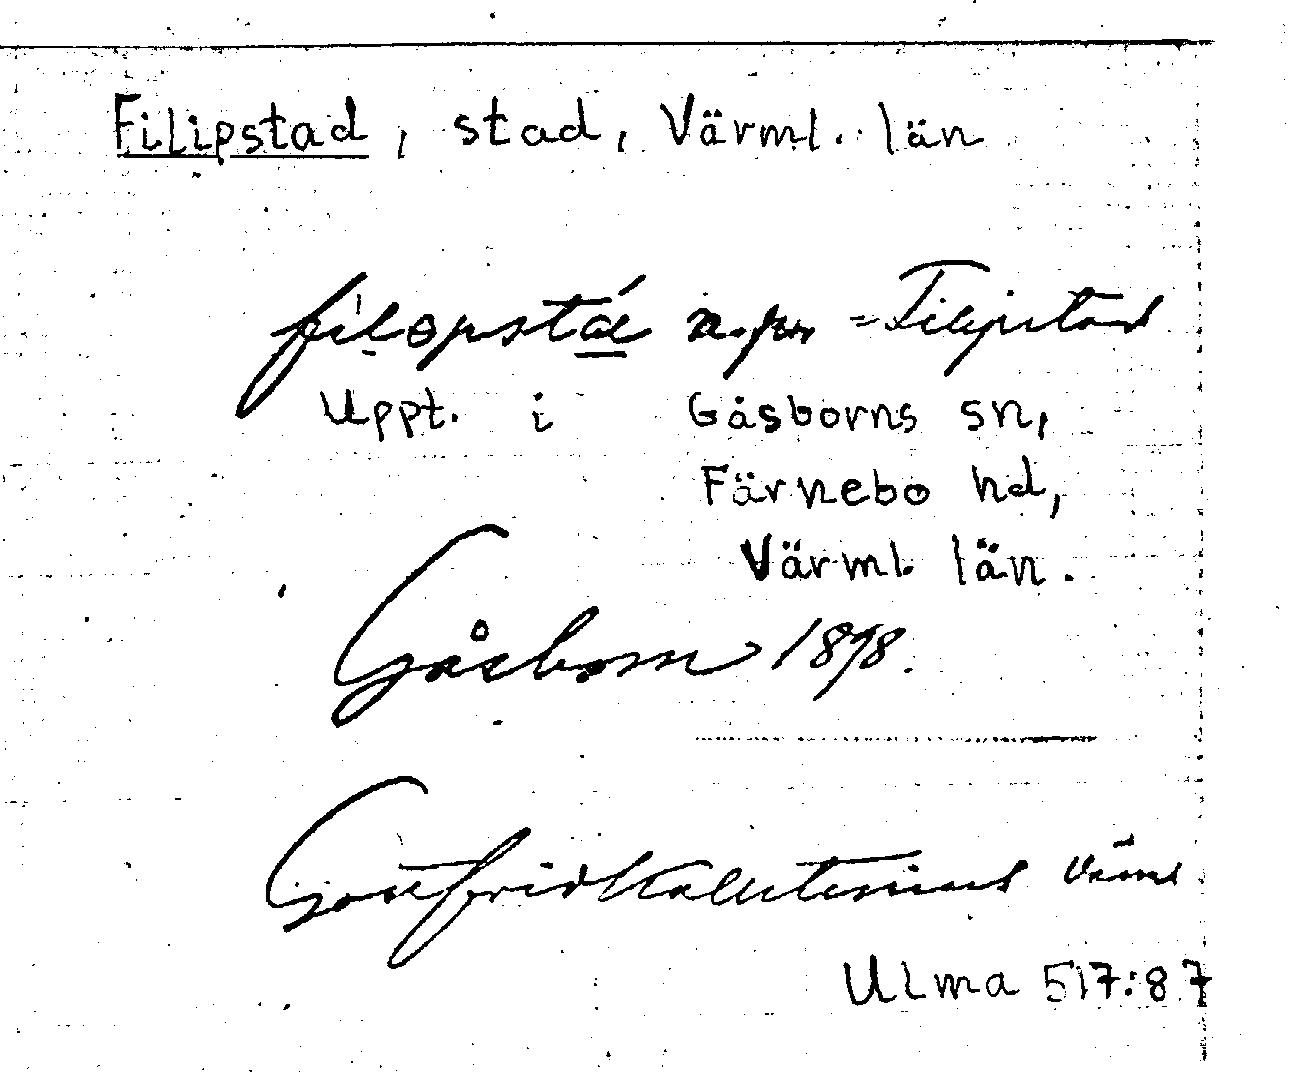 Filipstad, stad, Värml. län
filɵpstá n.pr. = Filipstad
Uppt. i Gåsborns sn,
Färnebo hd,
Värml. län.
Gåsborn 1898.
Gottfrid Kallstenius
Ulma 517:87